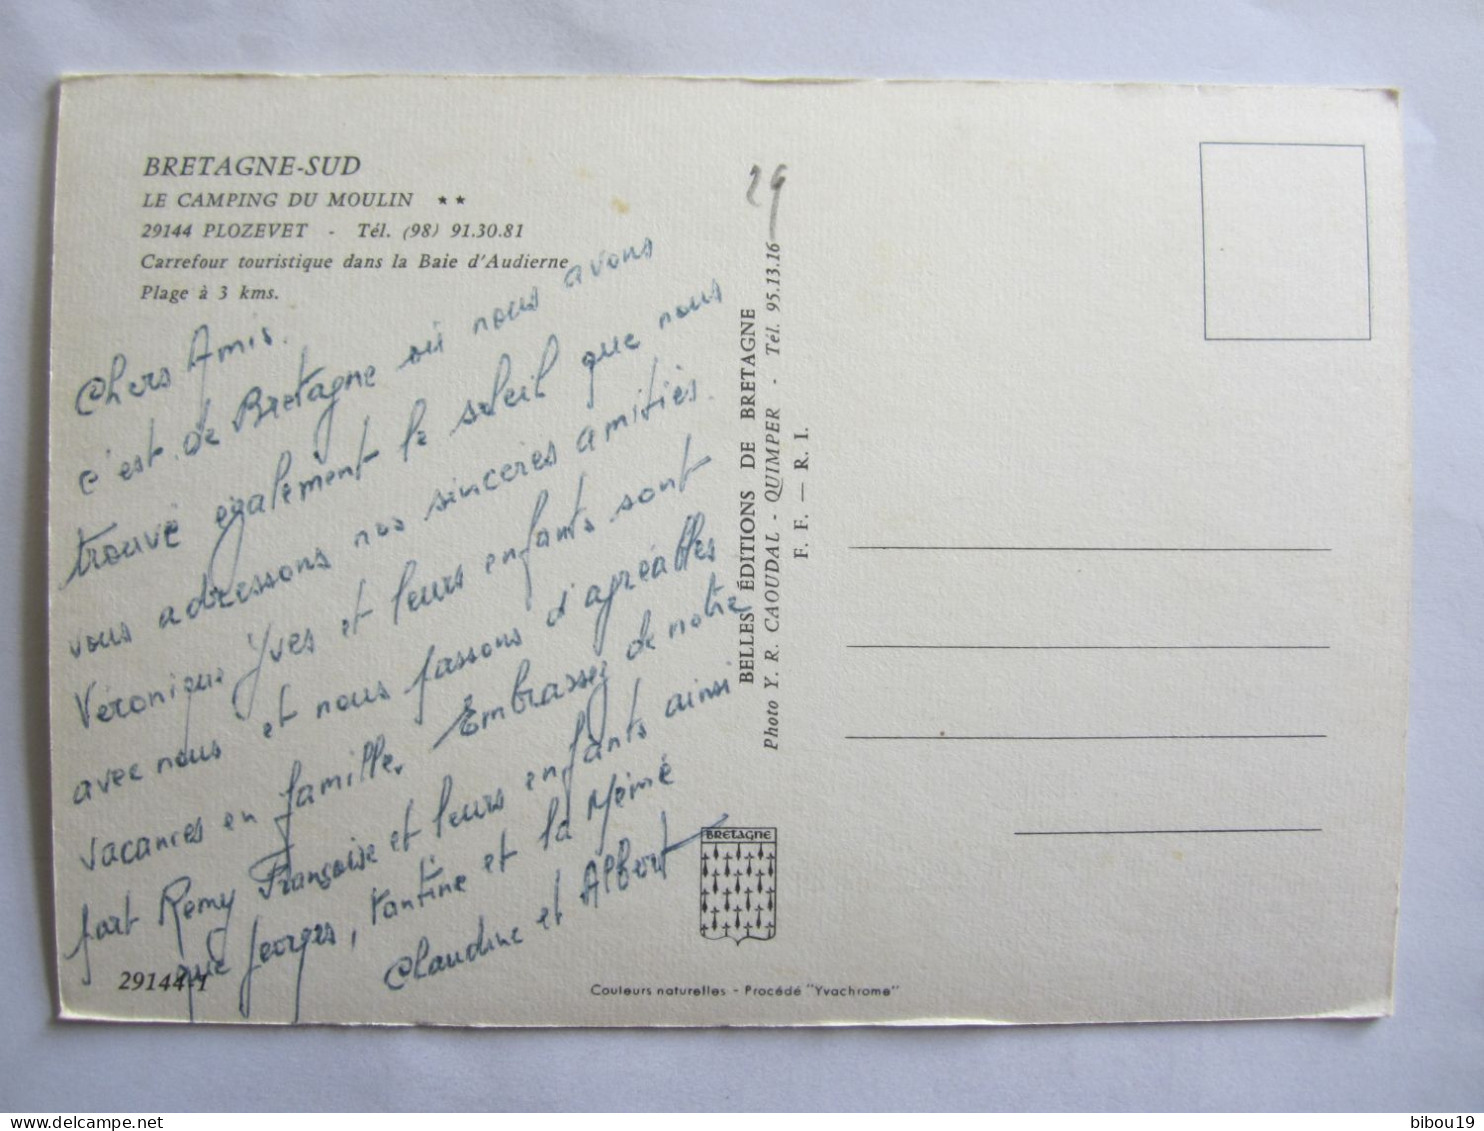 BRETAGNE-SUD
LE CAMPING DU MOULIN ★★
29144 PLOZEVET - Tél. (98) 91.30.81
Carrefour touristique dans la Baie d'Audierne
Plage à 3 kms.
Chers Amis.
c'est de Bretagne où nous avons
trouvé également le soleil que nous
vous adressons nos sinceres amitiés.
Véronique Yves et leurs enfants sont
avec nous et nous passons d'agréables
vacances en famille. Embrassez de notre
part Remy Françoise et leurs enfants ainsi
que Georges, tantine et la Mémé
Claudine et Albert
29144-1
29
BELLES ÉDITIONS DE BRETAGNE
Photo Y. R. CAOUDAL - QUIMPER - Tél. 95.13.16
F. F. — R. I.
BRETAGNE
Couleurs naturelles - Procédé "Yvachrome"
bibou19